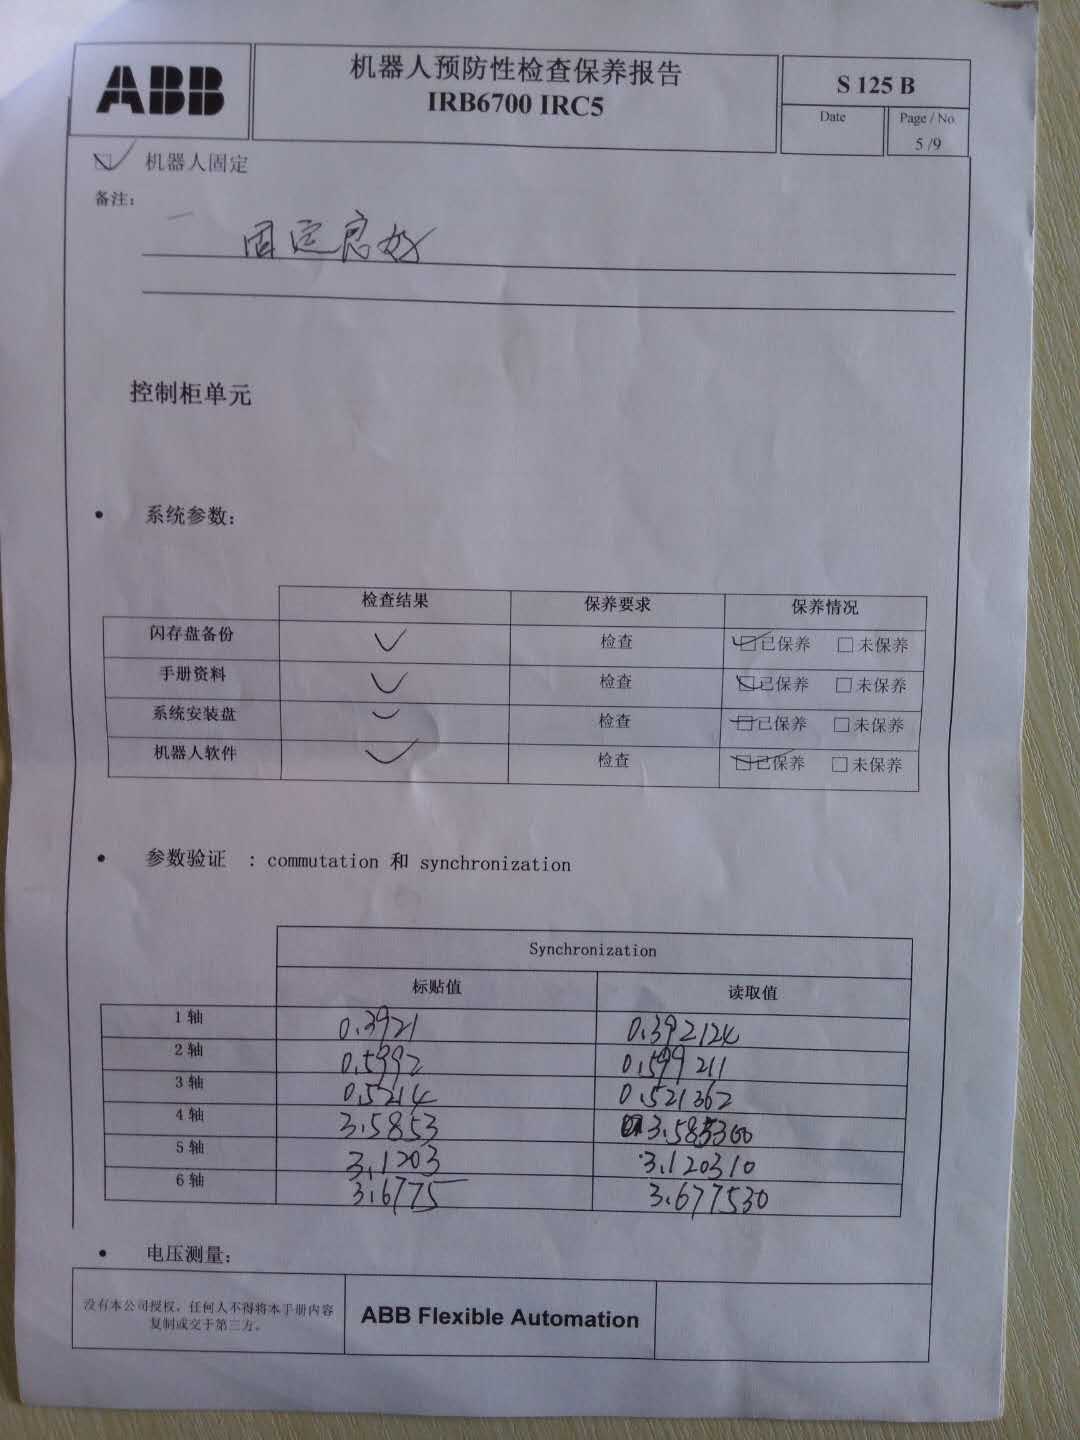 ABB
机器人预防性检查保养报告
IRB6700 IRC5
S 125 B
Date
Page / No
5 /9
机器人固定
备注:
固定良好
控制柜单元
• 系统参数:
检查结果 保养要求 保养情况
闪存盘备份 ✓ 检查 ☑已保养 □未保养
手册资料 ✓ 检查 ☑已保养 □未保养
系统安装盘 ✓ 检查 ☑已保养 □未保养
机器人软件 ✓ 检查 ☑已保养 □未保养
• 参数验证 : commutation 和 synchronization
Synchronization
标贴值 读取值
1轴 0.3921 0.392124
2轴 0.5992 0.599211
3轴 0.5214 0.521362
4轴 3.5853 3.585300
5轴 3.1203 3.120310
6轴 3.6775 3.677530
• 电压测量:
没有本公司授权,任何人不得将本手册内容
复制或交于第三方。
ABB Flexible Automation